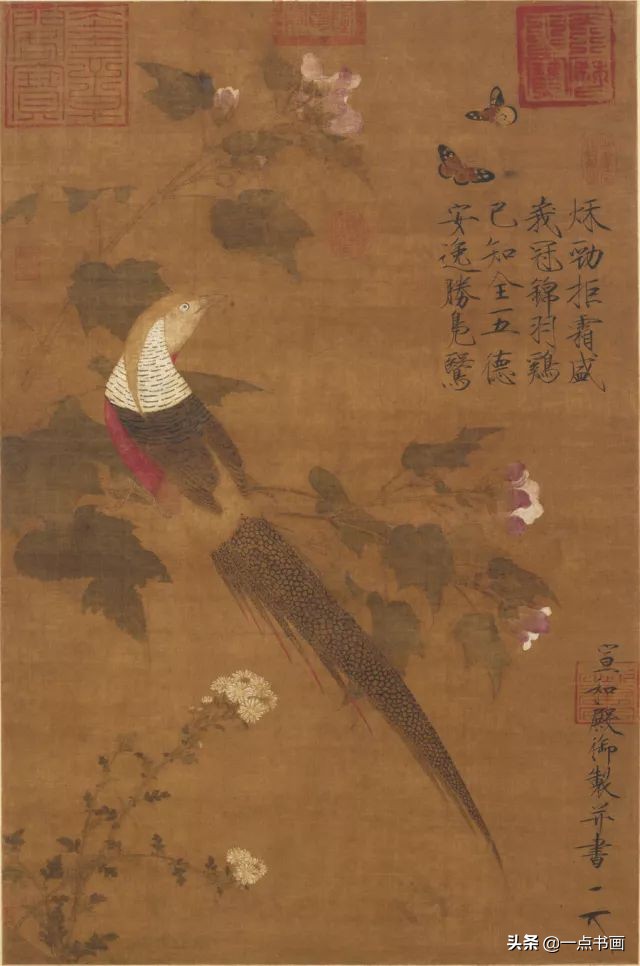 秋勁拒霜盛
峩冠錦羽鷄
已知全五德
安逸勝鳧鷖
宣和殿御製并書
头条 @一点书画